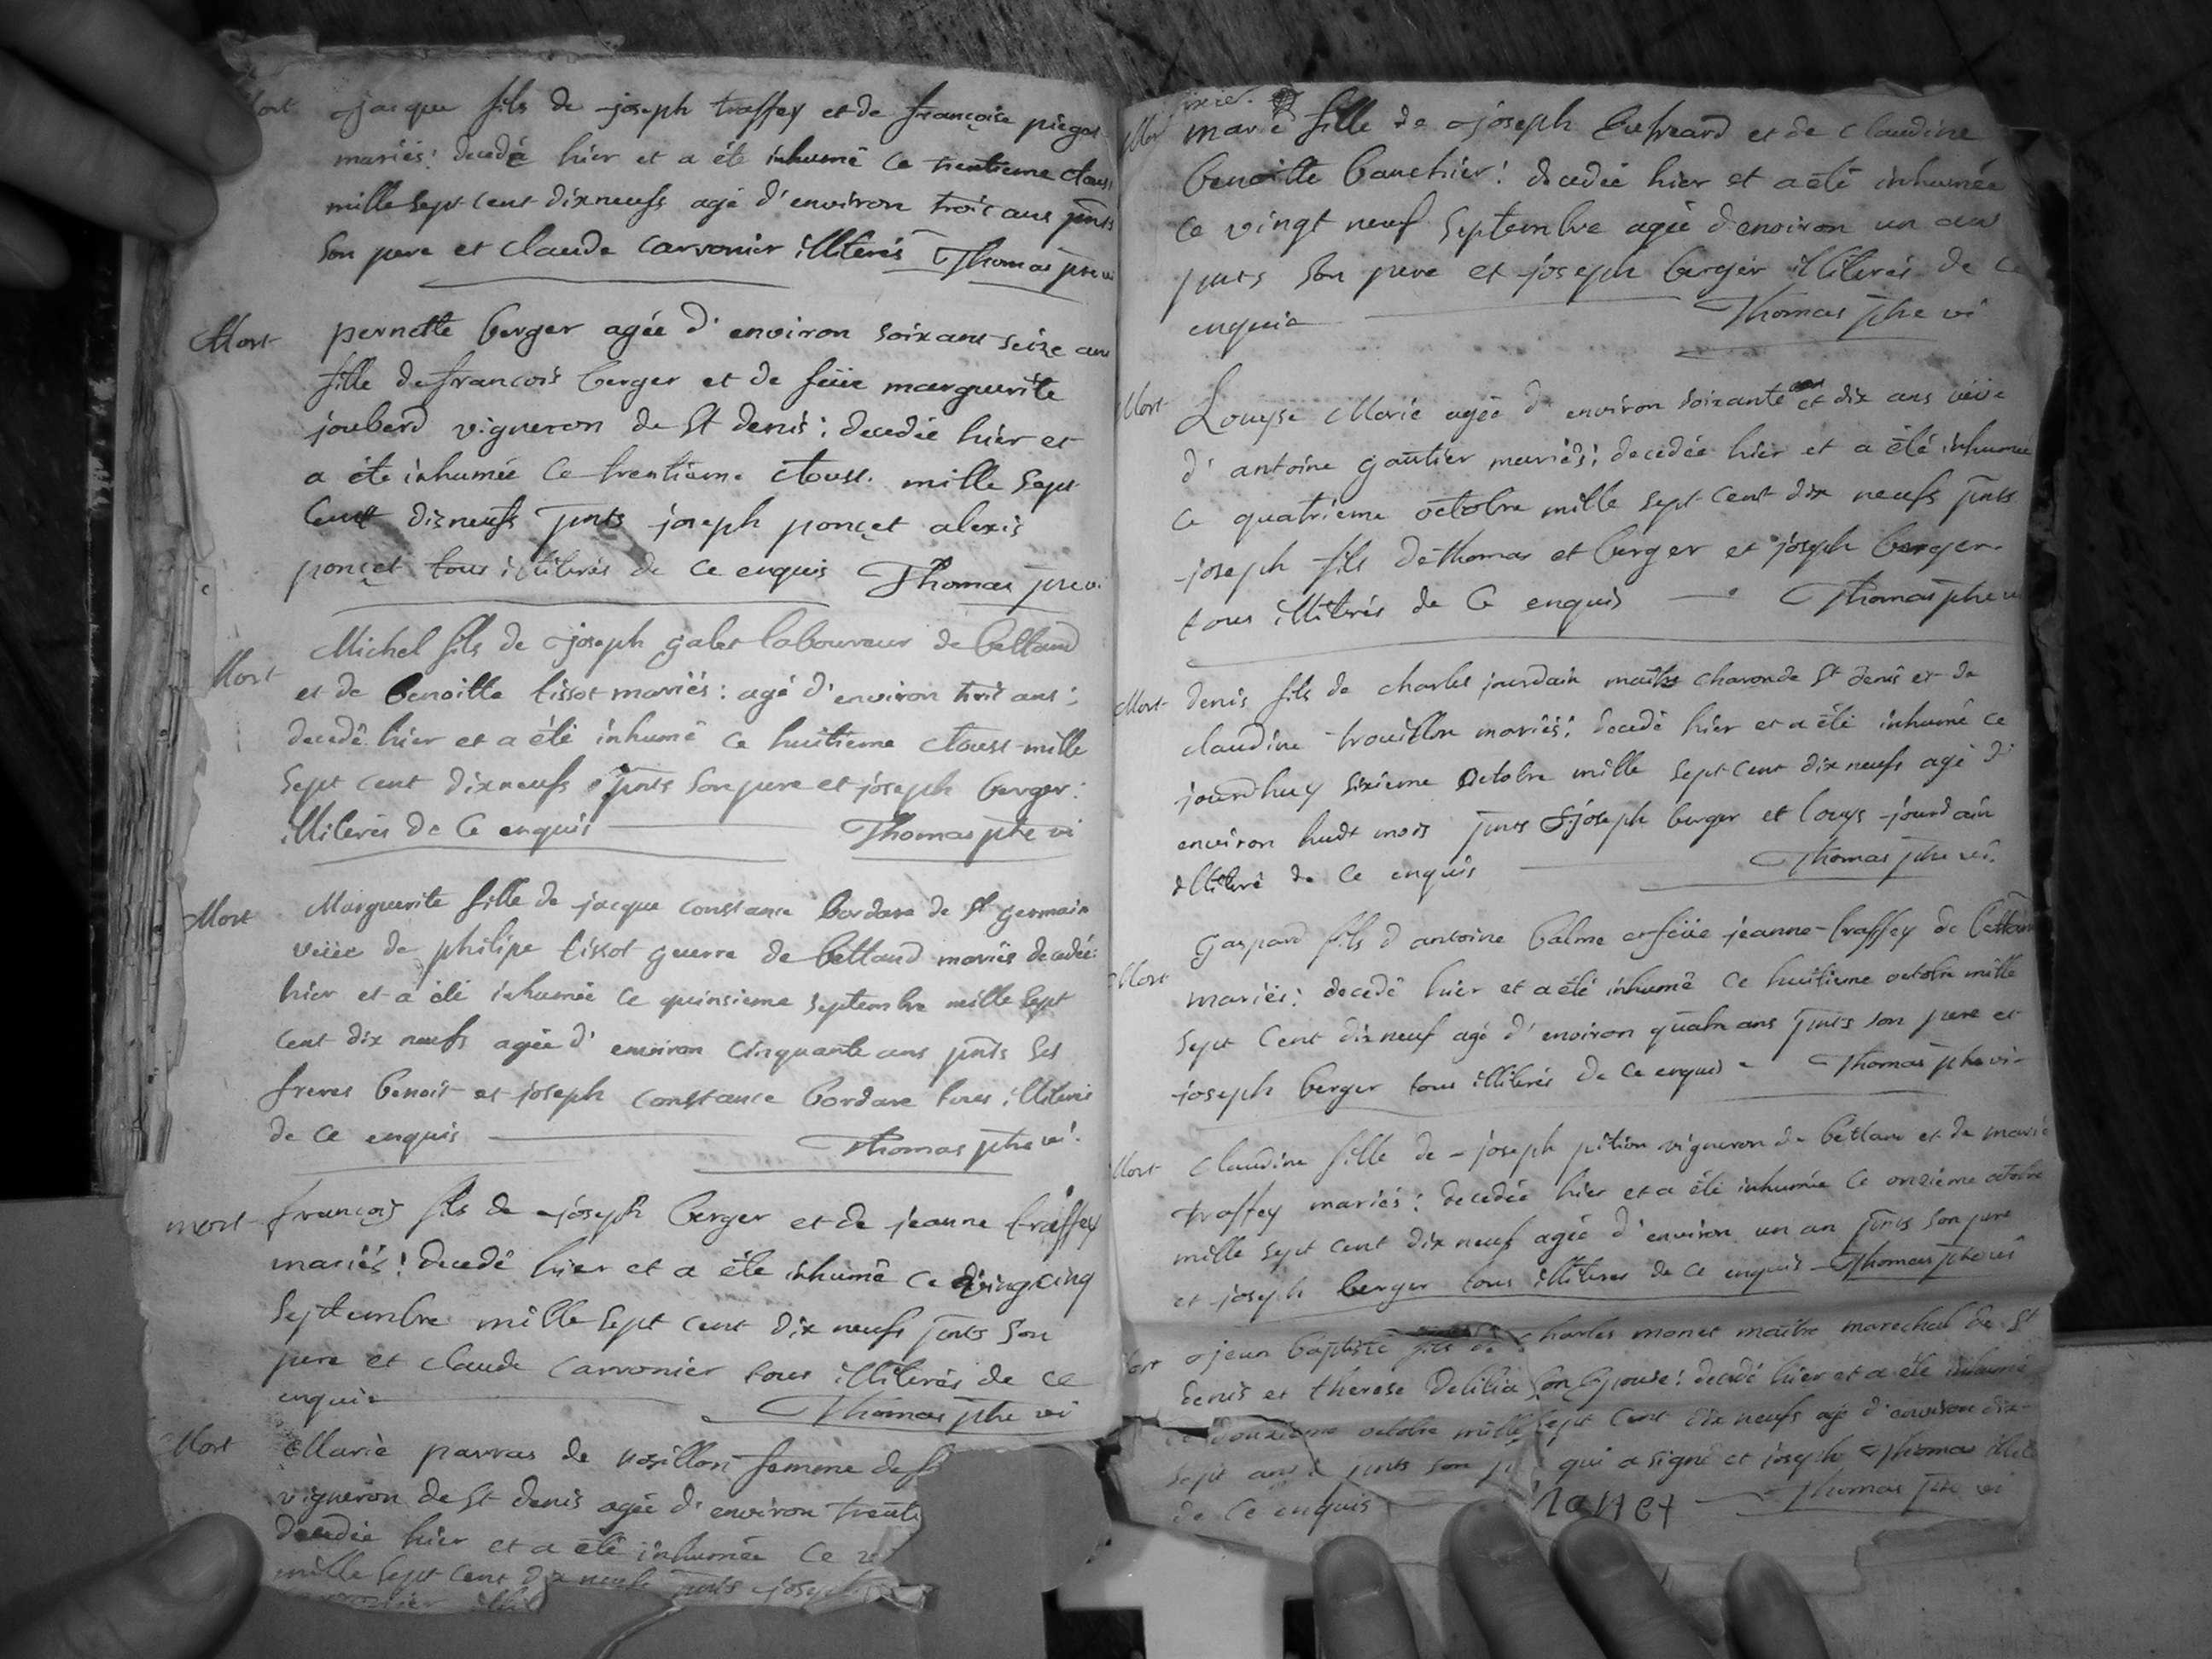 Mort
jacque fils de joseph traffey et de françoise
mariés: decedé hier et a été inhumé ce trentieme
mille sept cent dixneufs agé d'environ trois ans pnts
son pere et claude carronier illiterés Thomas
Mort
pernette berger agée d'environ soixant seize ans
fille de françois berger et de feüe marguerite
jouberd vigneron de St denis: decedée hier et
a éte inhumée ce trentieme mille sept
cent dixneufs pnts joseph ponçet alexis
ponçet tous illiterés de ce enquis Thomas ptre vi
Mort
Michel fils de joseph galet laboureur de bettand
et de benoitte tissot mariés: agé d'environ trois ans:
decedé hier et a été inhumé ce huitieme mille
sept cent dixneufs pnts son pere et joseph berger:
illiterés de ce enquis Thomas ptre vi
Mort
Marguerite fille de jacque constance bordare de St germain
veüve de philipe tissot guerre de bettand mariés decedée
hier et a été inhumée ce quinsieme septembre mille sept
cent dix neufs agée d'environ cinquante ans pnts ses
freres benoit et joseph constance bordare tous illiterés
de ce enquis Thomas ptre vi.
mort
françois fils de joseph berger et de jeanne traffey
mariés: decedé hier et a éte inhumé ce vingt cinq
septembre mille sept cent dix neufs pnts son
pere et claude carronier tous illiterés de ce
enquis Thomas ptre vi
Mort
Marie parras de femme de
vigneron de St denis agée d'environ trente
decedée hier et a été inhumée ce
mille sept cent dix neufs pnts joseph
Mort
marie fille de joseph et de claudine
benoitte bauchier: decedée hier et a été inhumée
ce vingt neuf septembre agée d'environ un an
pnts son pere et joseph berger illiterés de ce
enquis Thomas ptre vi
Mort
Louyse Marie agée d'environ soixante et dix ans veüve
d'antoine gautier mariés: decedée hier et a été inhumée
ce quatrieme octobre mille sept cent dix neufs pnts
joseph fils de thomas et berger et joseph berger
tous illiterés de ce enquis Thomas ptre vi
Mort
denis fils de charles jourdain maitre charon de St denis et de
claudine trouillon mariés: decedé hier et a été inhumé ce
jourdhuy sixieme octobre mille sept cent dix neufs agé d'
environ huit mois pnts joseph berger et louys jourdain
illiteré de ce enquis Thomas ptre vi.
Mort
gaspard fils d'antoine balme et feüe jeanne traffey de bettand
mariés: decedé hier et a été inhumé ce huitieme octobre mille
sept cent dixneuf agé d'environ quatre ans pnts son pere et
joseph berger tous illiterés de ce enquis Thomas ptre vi
Mort
claudine fille de joseph pition vigneron de bettand et de marie
traffey mariés: decedée hier et a été inhumée ce onzieme octobre
mille sept cent dix neuf agée d'environ un an pnts son pere
et joseph berger tous illiteres de ce enquis Thomas ptre vi
jean baptiste fils de charles monet maitre marechal de St
denis et therese delilia son epouse: decedé hier et a éte inhumé
ce douzieme octobre mille sept cent dix neufs agé d'environ dix
sept ans pnts son qui a signé et joseph Thomas
de ce enquis monet Thomas ptre vi